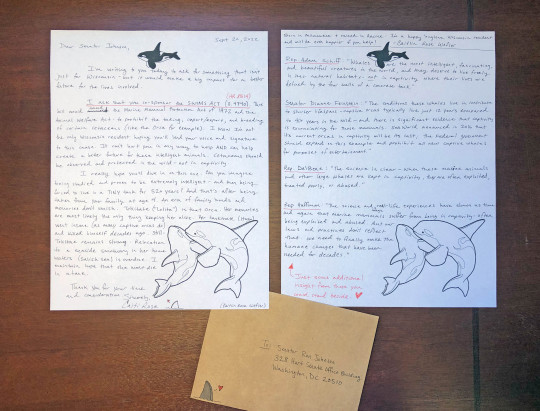 Sept 20, 2022
Dear Senator Johnson,
I'm writing to you today to ask for something that isn't
just for Wisconsin - but it would make a big impact for a better
future for the lives involved.
I ask that you co-sponsor the SWIMS ACT
This
Act would the Marine Mammal Protection Act of 1972 and the
Animal Welfare Act - to prohibit the taking, import/export, and breeding
of certain cetaceans (like the orca for example). It would not
be only Wisconsin residents having your voice and signature
in this cause. It can't hurt you in any way to help AND can help
create a better future for these intelligent animals. Cetaceans should
be observed, and protected in the wild - not in captivity.
I really hope you'll dive in to this act. Can you imagine
being studied, and proven to be extremely intelligent - and then being
forced to live in a tiny tank for 50+ years? And that's after being
taken from your family, at age 4! An area of family bonds and
memories don't vanish. Tokitae (Lolita) is that orca. Her memories
are most likely the only thing keeping her alive. Her tankmate (Hugo)
went insane (as many captive orcas do)
and killed himself decades ago. Still
Tokitae remains strong. Relocation
to a seaside sanctuary in her home
waters (Salish sea) is needed. I
maintain hope that she won't die
in a tank.
Thank you for your time
and consideration.
Sincerely,
(Caitlin Rose Walter)
and will be even happier if you help! - Caitlin Rose Walter
Rep. Adam Schiff "Whales are the most intelligent, fascinating,
and beautiful creatures in the world, and they deserve to live freely
in their natural habitats, not in captivity where their lives are
defined by the four walls of a concrete tank."
Senator Dianne Feinstein: "The conditions these whales live in contribute
to shorter lifespans - captive orcas typically live just 13 years compared
to 40+ years in the wild - and there is significant evidence that captivity
is excruciating for these mammals. SeaWorld announced in 2016 that
its current orcas in captivity will be the last, the federal government
should expand on this example and prohibit all new captive whales
for purposes of entertainment."
Rep DelBene: "The science is clear - when these marine animals
and other large species are kept in captivity, they are often exploited,
treated poorly, or abused."
Rep Huffman "The science and real-life experiences have shown us time
and again that marine mammals suffer from being in captivity - often
being exploited and abused. But our
laws and practices don't reflect
that. We need to finally make the
humane changes that have been
needed for decades."
Just some additional
insight from those you
work most beside. ♥
To: Senator Ron Johnson
328 Hart Senate Office Building
Washington, DC 20510